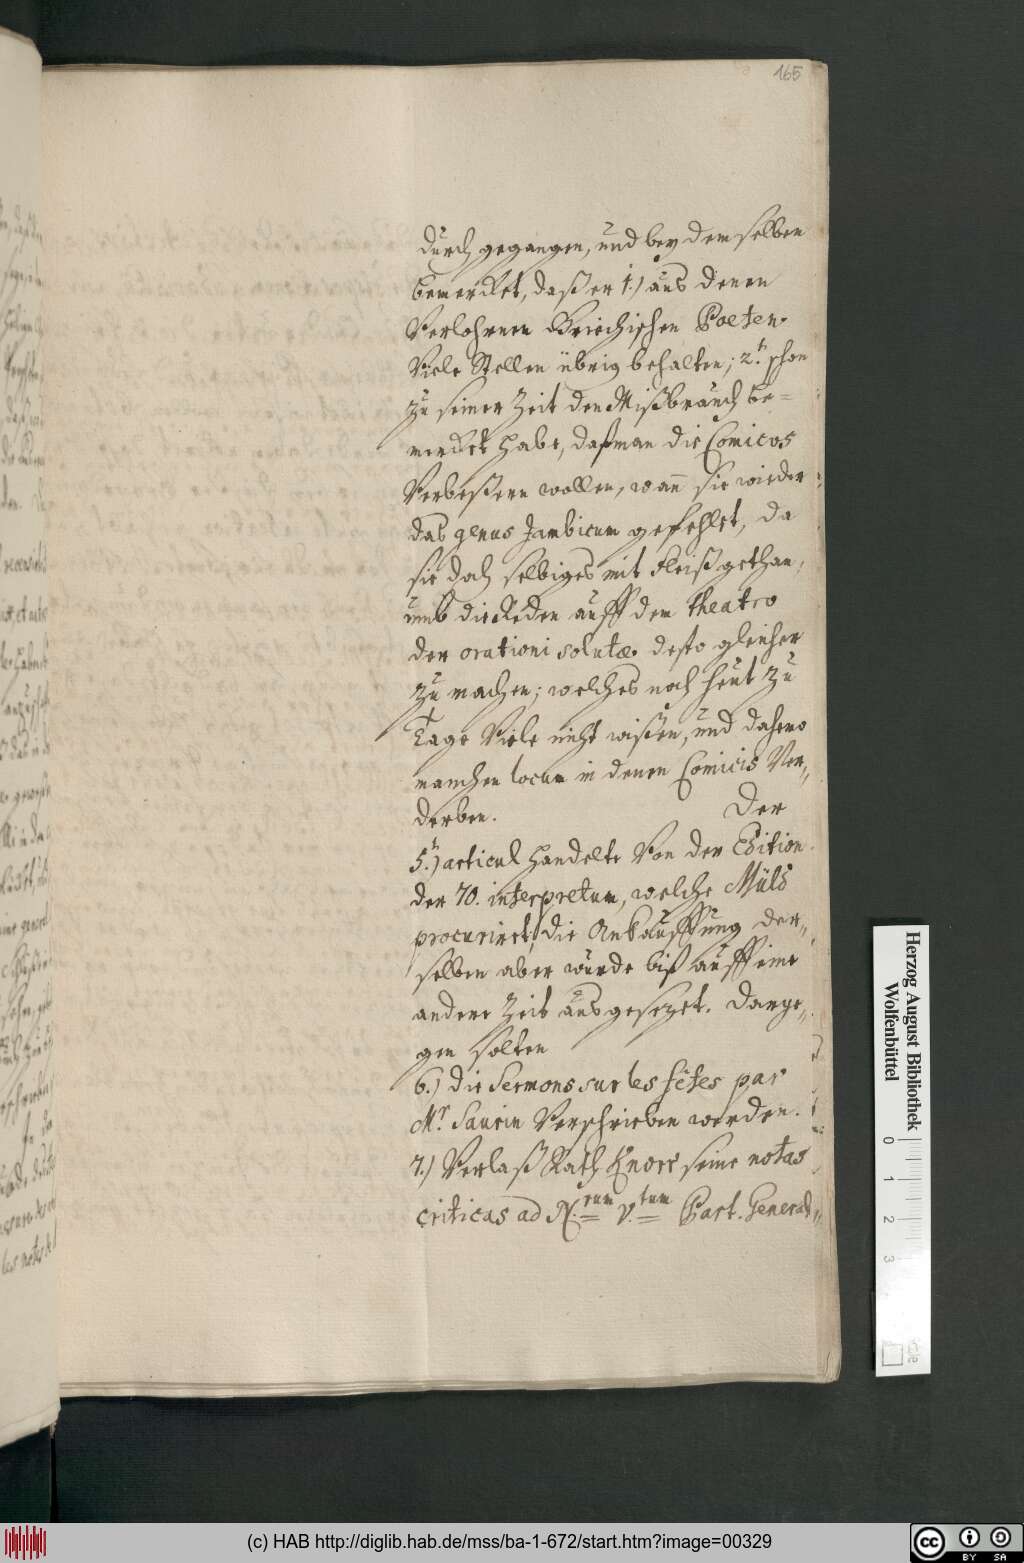 165
durch gegangen, und bey dem selben
bemercket, daß er 1.) aus denen
Verlohrnen Griechischen Poeten
Viele Stellen übrig behalten; 2.t schon
zu seiner Zeit den Mißbrauch be=
mercket habe, daß man die Comicos
Verbeßern wollen, wann sie wieder
das genus Jambicum gefehlet, da
sie doch selbiges mit Fleiß gethan,
umb die Reden auff dem theatro
der orationi solutæ desto gleicher
zu machen; welches noch heut zu
Tage Viele nicht wißen, und dahero
manchen locum in denen Comicis Ver„
derben. Der
5.t) articul handelte Von der Edition
der 70. interpretum, welche Müld
procuriret, die Ankauffung der„
selben aber wurde biß auff eine
andere Zeit ausgesezet. Darge„
gen solten
6.) die Sermons sur les fêtes par
Mr. Saurin Verschrieben werden.
7.) Verlaß Rath Knorr seine notas
criticas ad N.rum V.tum Part. General„
Herzog August Bibliothek
Wolfenbüttel
0
1
2
3
(c) HAB http://diglib.hab.de/mss/ba-1-672/start.htm?image=00329
cc
BY
SA